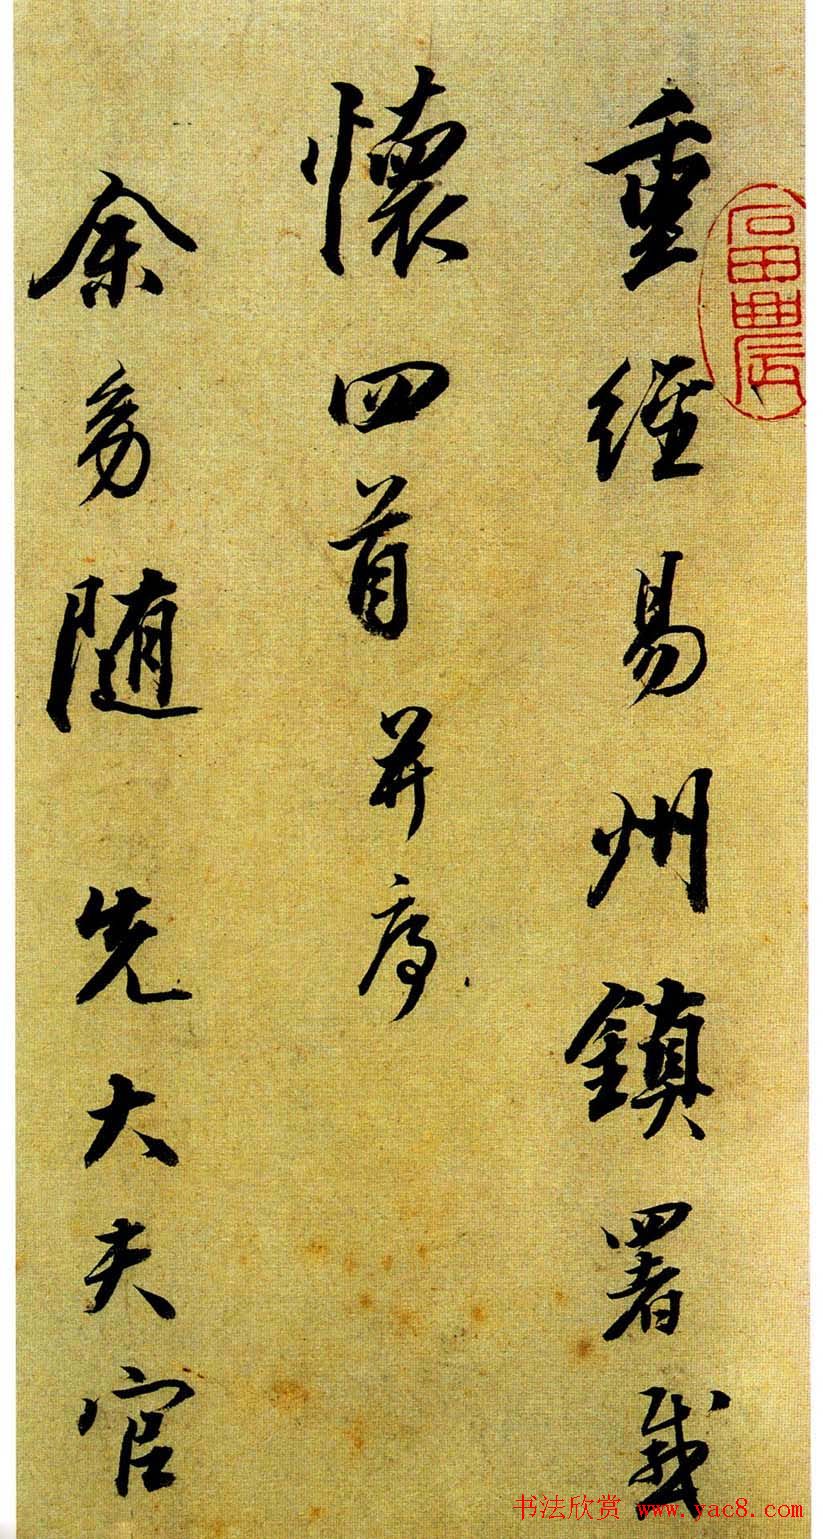 重經易州鎮署感
懷四首并序
余幼随先大夫官
书法欣赏 www.yac8.com